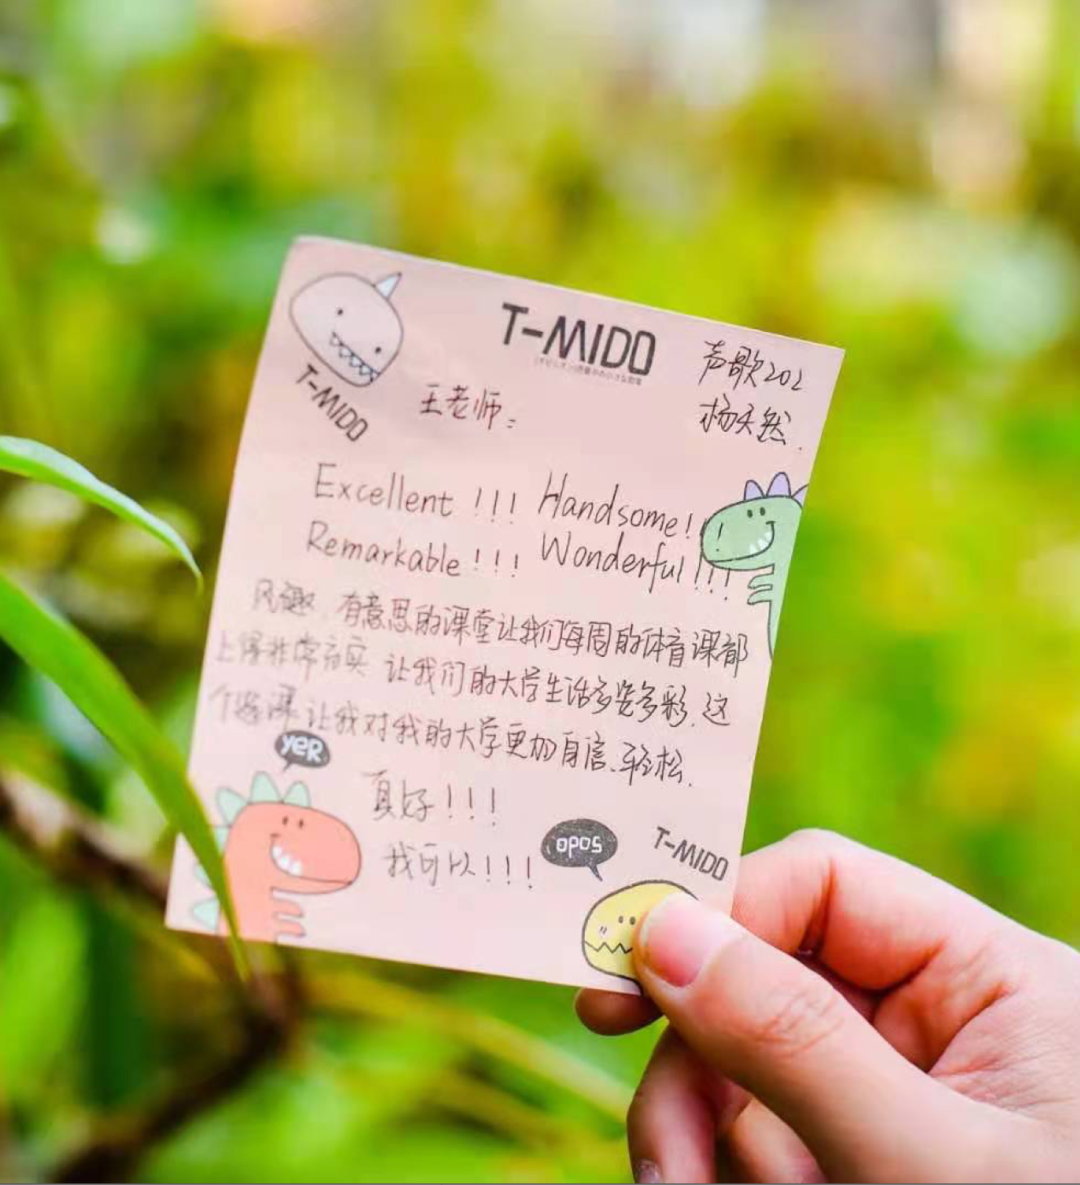 T-MIDO
声歌202
杨天然.
T-MIDO
王老师:
Excellent !!! Handsome!!!
Remarkable!!! Wonderful!!!
风趣、有意思的课堂让我们每周的体育课都
上得非常充实 让我们的大学生活多姿多彩.这
个选课让我对我的大学更加自信、轻松.
YER
真好!!!
我可以!!!
opos
T-MIDO